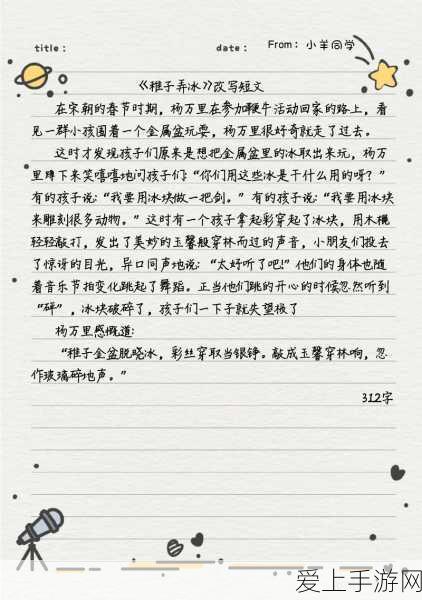 title：
date：
From：小羊同学
《稚子弄冰》改写短文
在宋朝的春节时期，杨万里在参加鞭牛活动回家的路上，看
见一群小孩围着一个金属盆玩耍，杨万里很好奇就走了过去。
这时才发现孩子们原来是想把金属盆里的冰取出来玩，杨万
里蹲下来笑嘻嘻地问孩子们："你们用这些冰是干什么用的呀？"
有的孩子说："我要用冰块做一把剑。"有的孩子说："我要用冰块
来雕刻很多动物。"这时有一个孩子拿起彩穿起了冰块，用木槌
轻轻敲打，发出了美妙的玉馨般穿林而过的声音，小朋友们投去
了惊讶的目光，异口同声地说："太好听了吧!"他们的身体也随
着音乐节拍变化跳起了舞蹈。正当他们跳的开心的时候忽然听到
"砰"，冰块破碎了，孩子们一下子就失望极了
杨万里感慨道：
"稚子金盆脱晓冰，彩丝穿取当银铮。敲成玉馨穿林响，忽
作玻璃碎地声。"
312字
爱上手游网